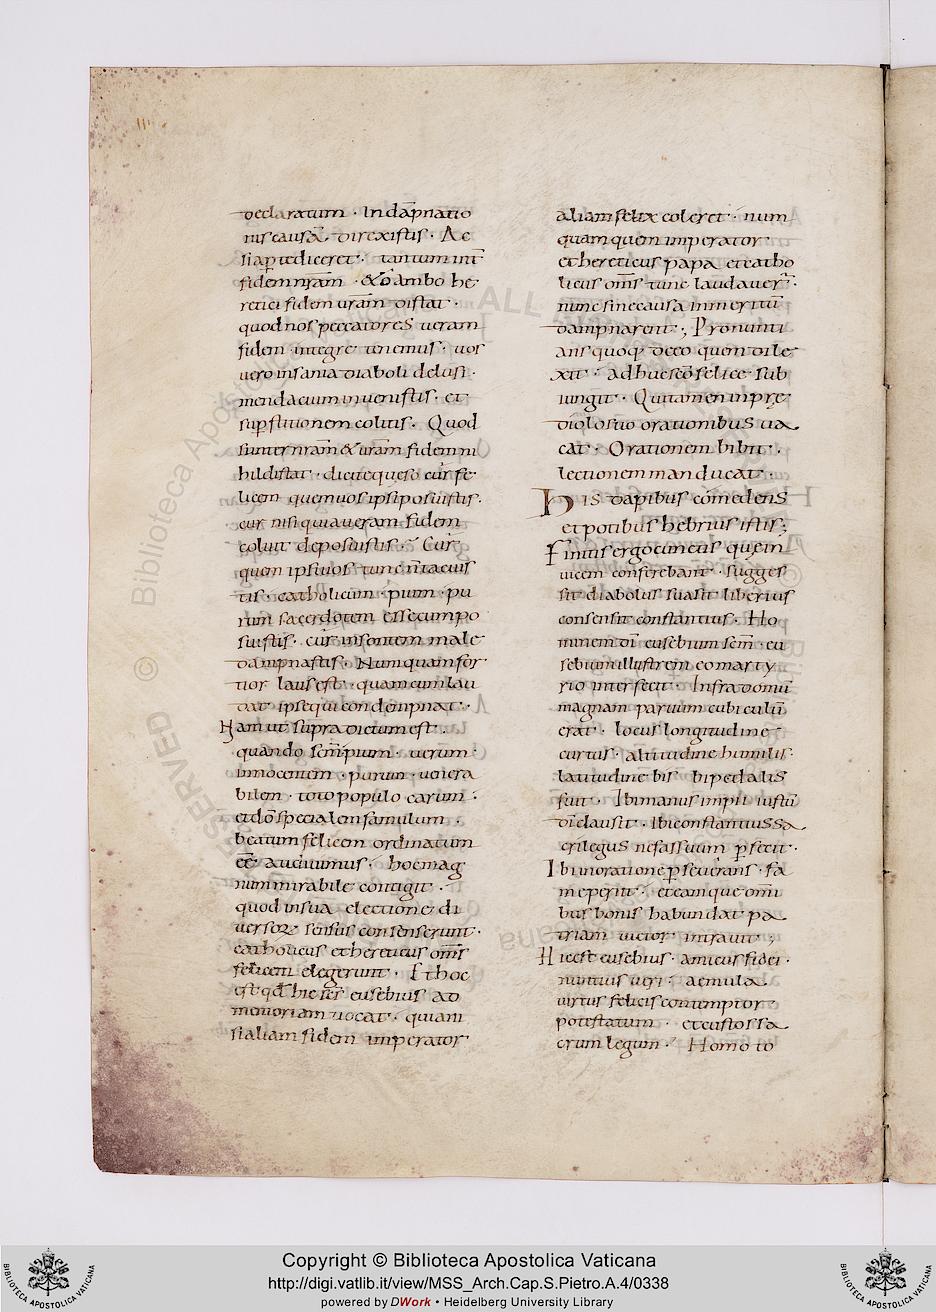 declaratum · In dāpnatio
nis causā, direxistis · Ac
si aꝑte diceret · tantum int̄
fidem nr̄am · & ambo he
retici fidem ur̄am distat ·
quod nos peccatores ueram
fidem integre tenemus · uos
uero insania diaboli delusi ·
mendacium inuenistis · et
suꝑstitionem colitis · Quod
si inter nr̄am & ur̄am fidem ni
hil distat · dicite queso cur fe
licem quem uos ipsi posuistis ·
cur nisi quia ueram fidem
coluit deposuistis · Cur
quem ipsi uos tunc iactauis
tis · catholicum · pium · pu
rum sacerdotem esse cum po
suistis · cur insontem male
dampnastis · Numquam for
tior laus est · quam cum lau
dat ipse qui condempnat ·
Iam ut supra dictum est ·
quando semp̄ium · uerum ·
innocentem · purum · uenera
bilem · toto populo carum ·
et dō specialem famulum ·
beatum felicem ordinatum
eē audiuimus · hoc mag
num mirabile contigit ·
quod in sua electione di
uersorꝫ sensus consenserunt ·
catholicus et hereticus om̄s
felicem elegerunt · Et hoc
est qđ hic sc̄s eusebius ad
memoriam uocat · quam
si aliam fidem imperator
aliam felix coleret · num
quam quem imperator ·
et hereticus papa et catho
licus om̄s tunc laudauer̄ ·
nunc sine causa inmeritū
dampnarent ; Pronunti
ans quoq; deco quem dile
xit · ad huc sc̄o felice sub
iungit · Qui tamen in pre
diolo suo orationibus ua
cat · Orationem bibit ·
lectionem manducat ·
His dapibus comedens
et potibus hebrius istis ;
Finitis ergo cunctis que in
uicem conferebant · sugges
sit diabolus suasit liberius
consensit constantius · Ho
minem dī eusebium sc̄m · eu
sebium illustrem eo marty
rio interfecit · Infra domū
magnam paruum cubiculū
erat · locus longitudine
curtus · altitudine humilis ·
latitudine bis bipedalis
fuit · Ibi manus impii iustū
dī clausit · Ibi constantius sa
crilegus nefas suum ꝑfecit ·
Ibi in oratione ꝑseuerans · fa
me periit · et eam que omni
bus bonis habundat pa
triam uictor intrauit ;
Hic est eusebius · amicus fidei ·
nuntius ueri · aemula
uirtus felicis contemptor
potestatum · et custos sa
crum legum · Homo to
© Biblioteca Apostolica Vaticana
ALL RIGHTS RESERVED
Copyright © Biblioteca Apostolica Vaticana
http://digi.vatlib.it/view/MSS_Arch.Cap.S.Pietro.A.4/0338
powered by DWork • Heidelberg University Library
BIBLIOTECA APOSTOLICA VATICANA
BIBLIOTECA APOSTOLICA VATICANA